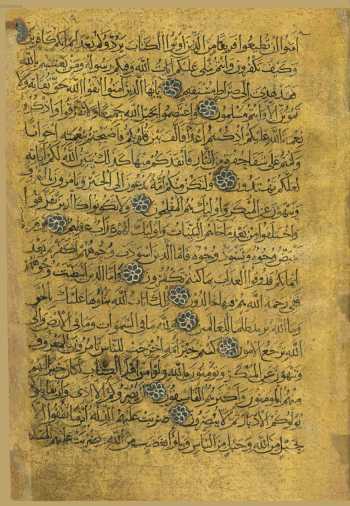 آمنوا ان تطيعوا فريقا من الذين اوتوا الكتاب يردوكم بعد ايمانكم كافرين
وكيف تكفرون وانتم تتلى عليكم آيات الله وفيكم رسوله ومن يعتصم بالله
فقد هدي الى صراط مستقيم يا ايها الذين آمنوا اتقوا الله حق تقاته ولا
تموتن الا وانتم مسلمون واعتصموا بحبل الله جميعا ولا تفرقوا واذكروا
نعمة الله عليكم اذ كنتم اعداء فالف بين قلوبكم فاصبحتم بنعمته اخوانا
وكنتم على شفا حفرة من النار فانقذكم منها كذلك يبين الله لكم آياته
لعلكم تهتدون ولتكن منكم امة يدعون الى الخير ويامرون بالمعروف
وينهون عن المنكر واولئك هم المفلحون ولا تكونوا كالذين تفرقوا
واختلفوا من بعد ما جاءهم البينات واولئك لهم عذاب عظيم يوم
تبيض وجوه وتسود وجوه فاما الذين اسودت وجوههم اكفرتم بعد
ايمانكم فذوقوا العذاب بما كنتم تكفرون واما الذين ابيضت وجوههم
ففي رحمة الله هم فيها خالدون تلك آيات الله نتلوها عليك بالحق
وما الله يريد ظلما للعالمين ولله ما في السموات وما في الارض والى
الله ترجع الامور كنتم خير امة اخرجت للناس تامرون بالمعروف
وتنهون عن المنكر وتؤمنون بالله ولو آمن اهل الكتاب لكان خيرا لهم
منهم المؤمنون واكثرهم الفاسقون لن يضروكم الا اذى وان يقاتلوكم
يولوكم الادبار ثم لا ينصرون ضربت عليهم الذلة اين ما ثقفوا الا
بحبل من الله وحبل من الناس وباؤا بغضب من الله وضربت عليهم المسكنة